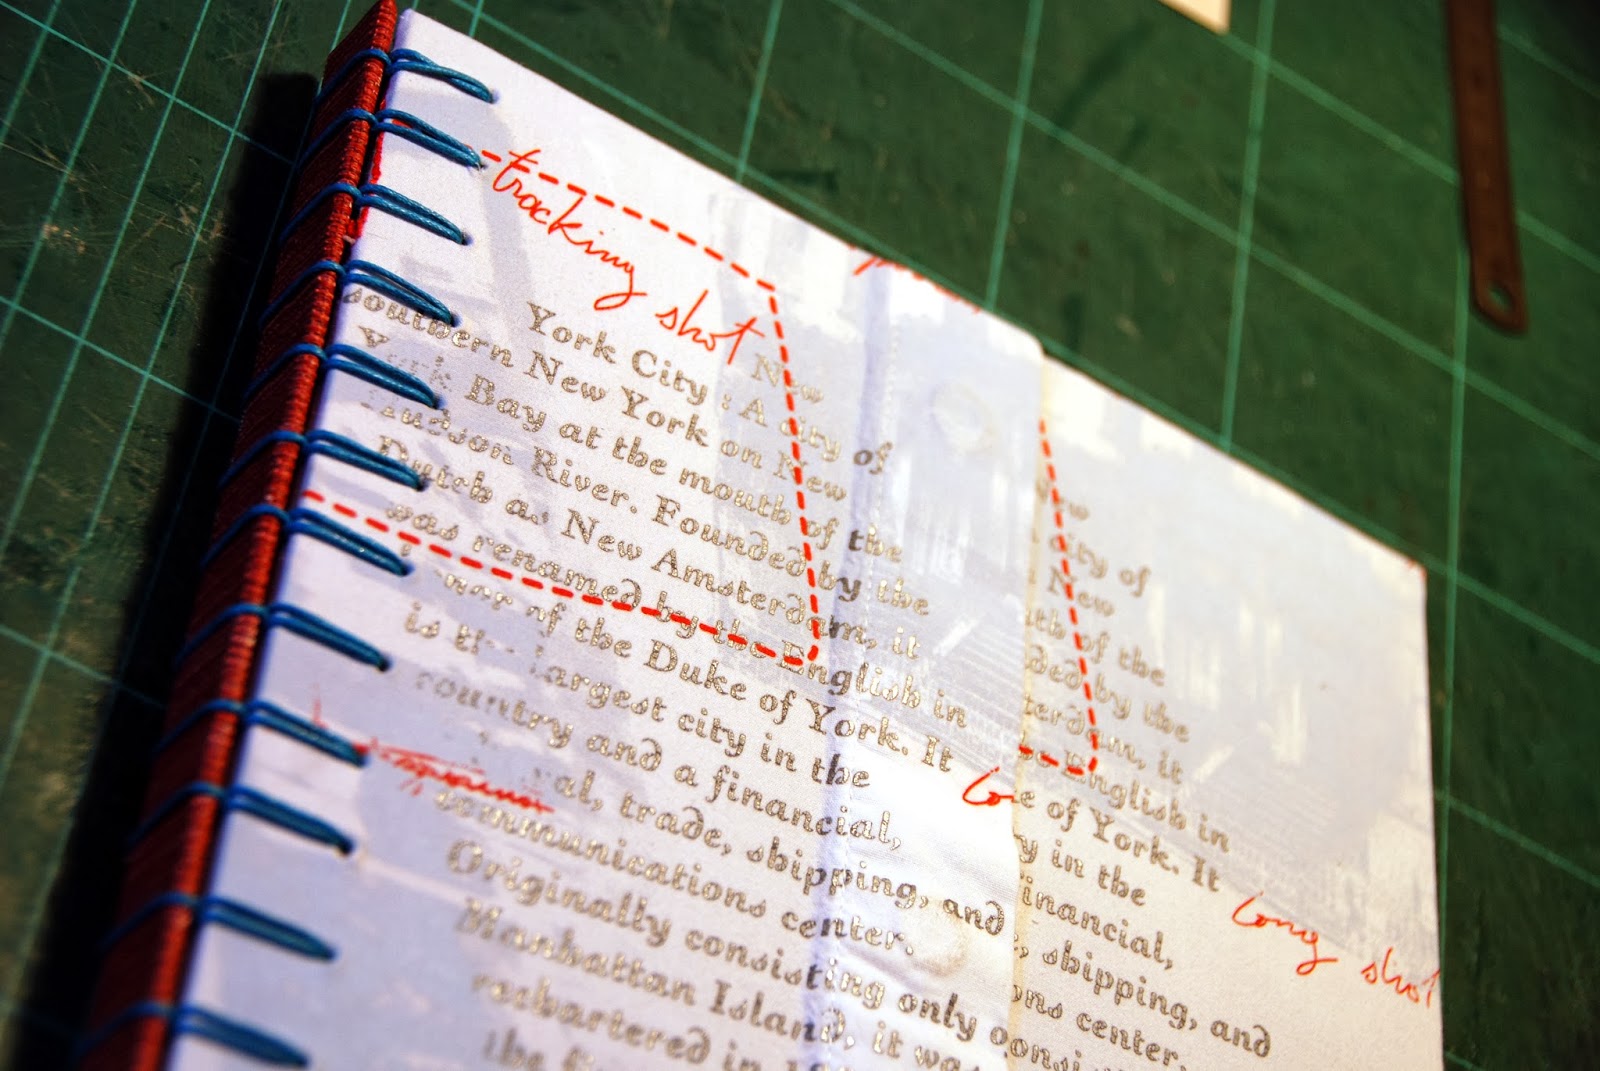 tracking shot
New
York City : A city of
southern New York on New
York Bay at the mouth of the
Hudson River. Founded by the
Dutch as New Amsterdam, it
was renamed by the English in
of the Duke of York. It
is the largest city in the
country and a financial,
al, trade, shipping, and
communications center.
Originally consisting only
Manhattan Island, it was
rechartered in
the
city of
New
of the
by the
terdam, it
English in
of York. It
in the
inancial,
shipping, and
ons center.
long shot